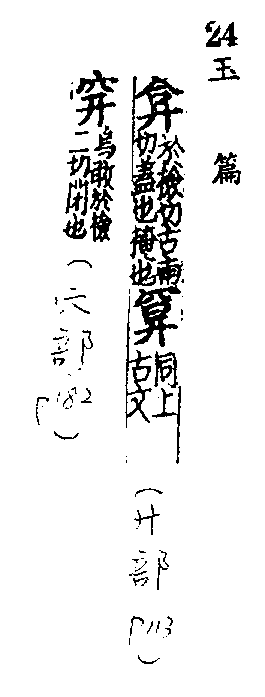 24
玉篇
弇
於檢切古南
切蓋也掩也
同上
古文
(廾部 P113)
烏敢於檢
二切閉也
(穴部 P182)